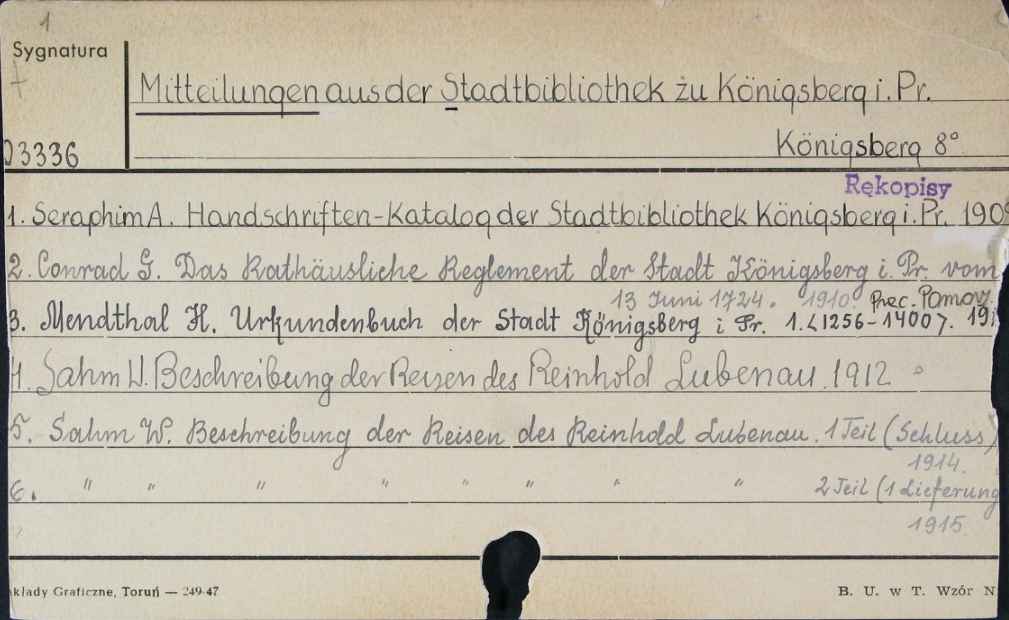 1
Sygnatura
Mitteilungen aus der Stadtbibliothek zu Königsberg i. Pr.
03336
Königsberg 8°
Rękopisy
1. Seraphim A. Handschriften-Katalog der Stadtbibliothek Königsberg i. Pr. 190
2. Conrad G. Das Rathäusliche Reglement der Stadt Königsberg i. Pr. vom
13 Juni 1724. 1910.
3. Mendthal H. Urkundenbuch der Stadt Königsberg i Pr. 1. <1256-1400>. 19
4. Sahm W. Beschreibung der Reisen des Reinhold Lubenau. 1912
5. Sahm W. Beschreibung der Reisen des Reinhold Lubenau. 1 Teil (Schluss)
1914.
6. " " " " " " " " 2 Teil (1 Lieferung
1915
kłady Graficzne, Toruń — 249-47
B. U. w T. Wzór N